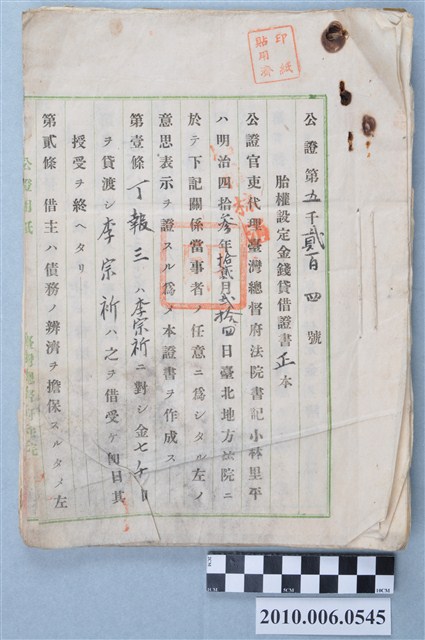 印紙
貼用濟
公證第五千貳百四號
胎權設定金錢貸借證書正本
公證官吏代理臺灣總督府法院書記小林里平
ハ明治四拾參年拾貳月貳拾四日臺北地方法院ニ
於テ下記關係當事者ノ任意ニ爲シタル左ノ
意思表示ヲ證スル爲メ本證書ヲ作成ス
第壹條 丁報三ハ李宗祈ニ對シ金七千
ヲ貸渡シ李宗祈ハ之ヲ借受ケ 日其
授受ヲ終ヘタリ
第貳條 借主ハ債務ノ辨濟ヲ擔保スルタメ左
2010.006.0545